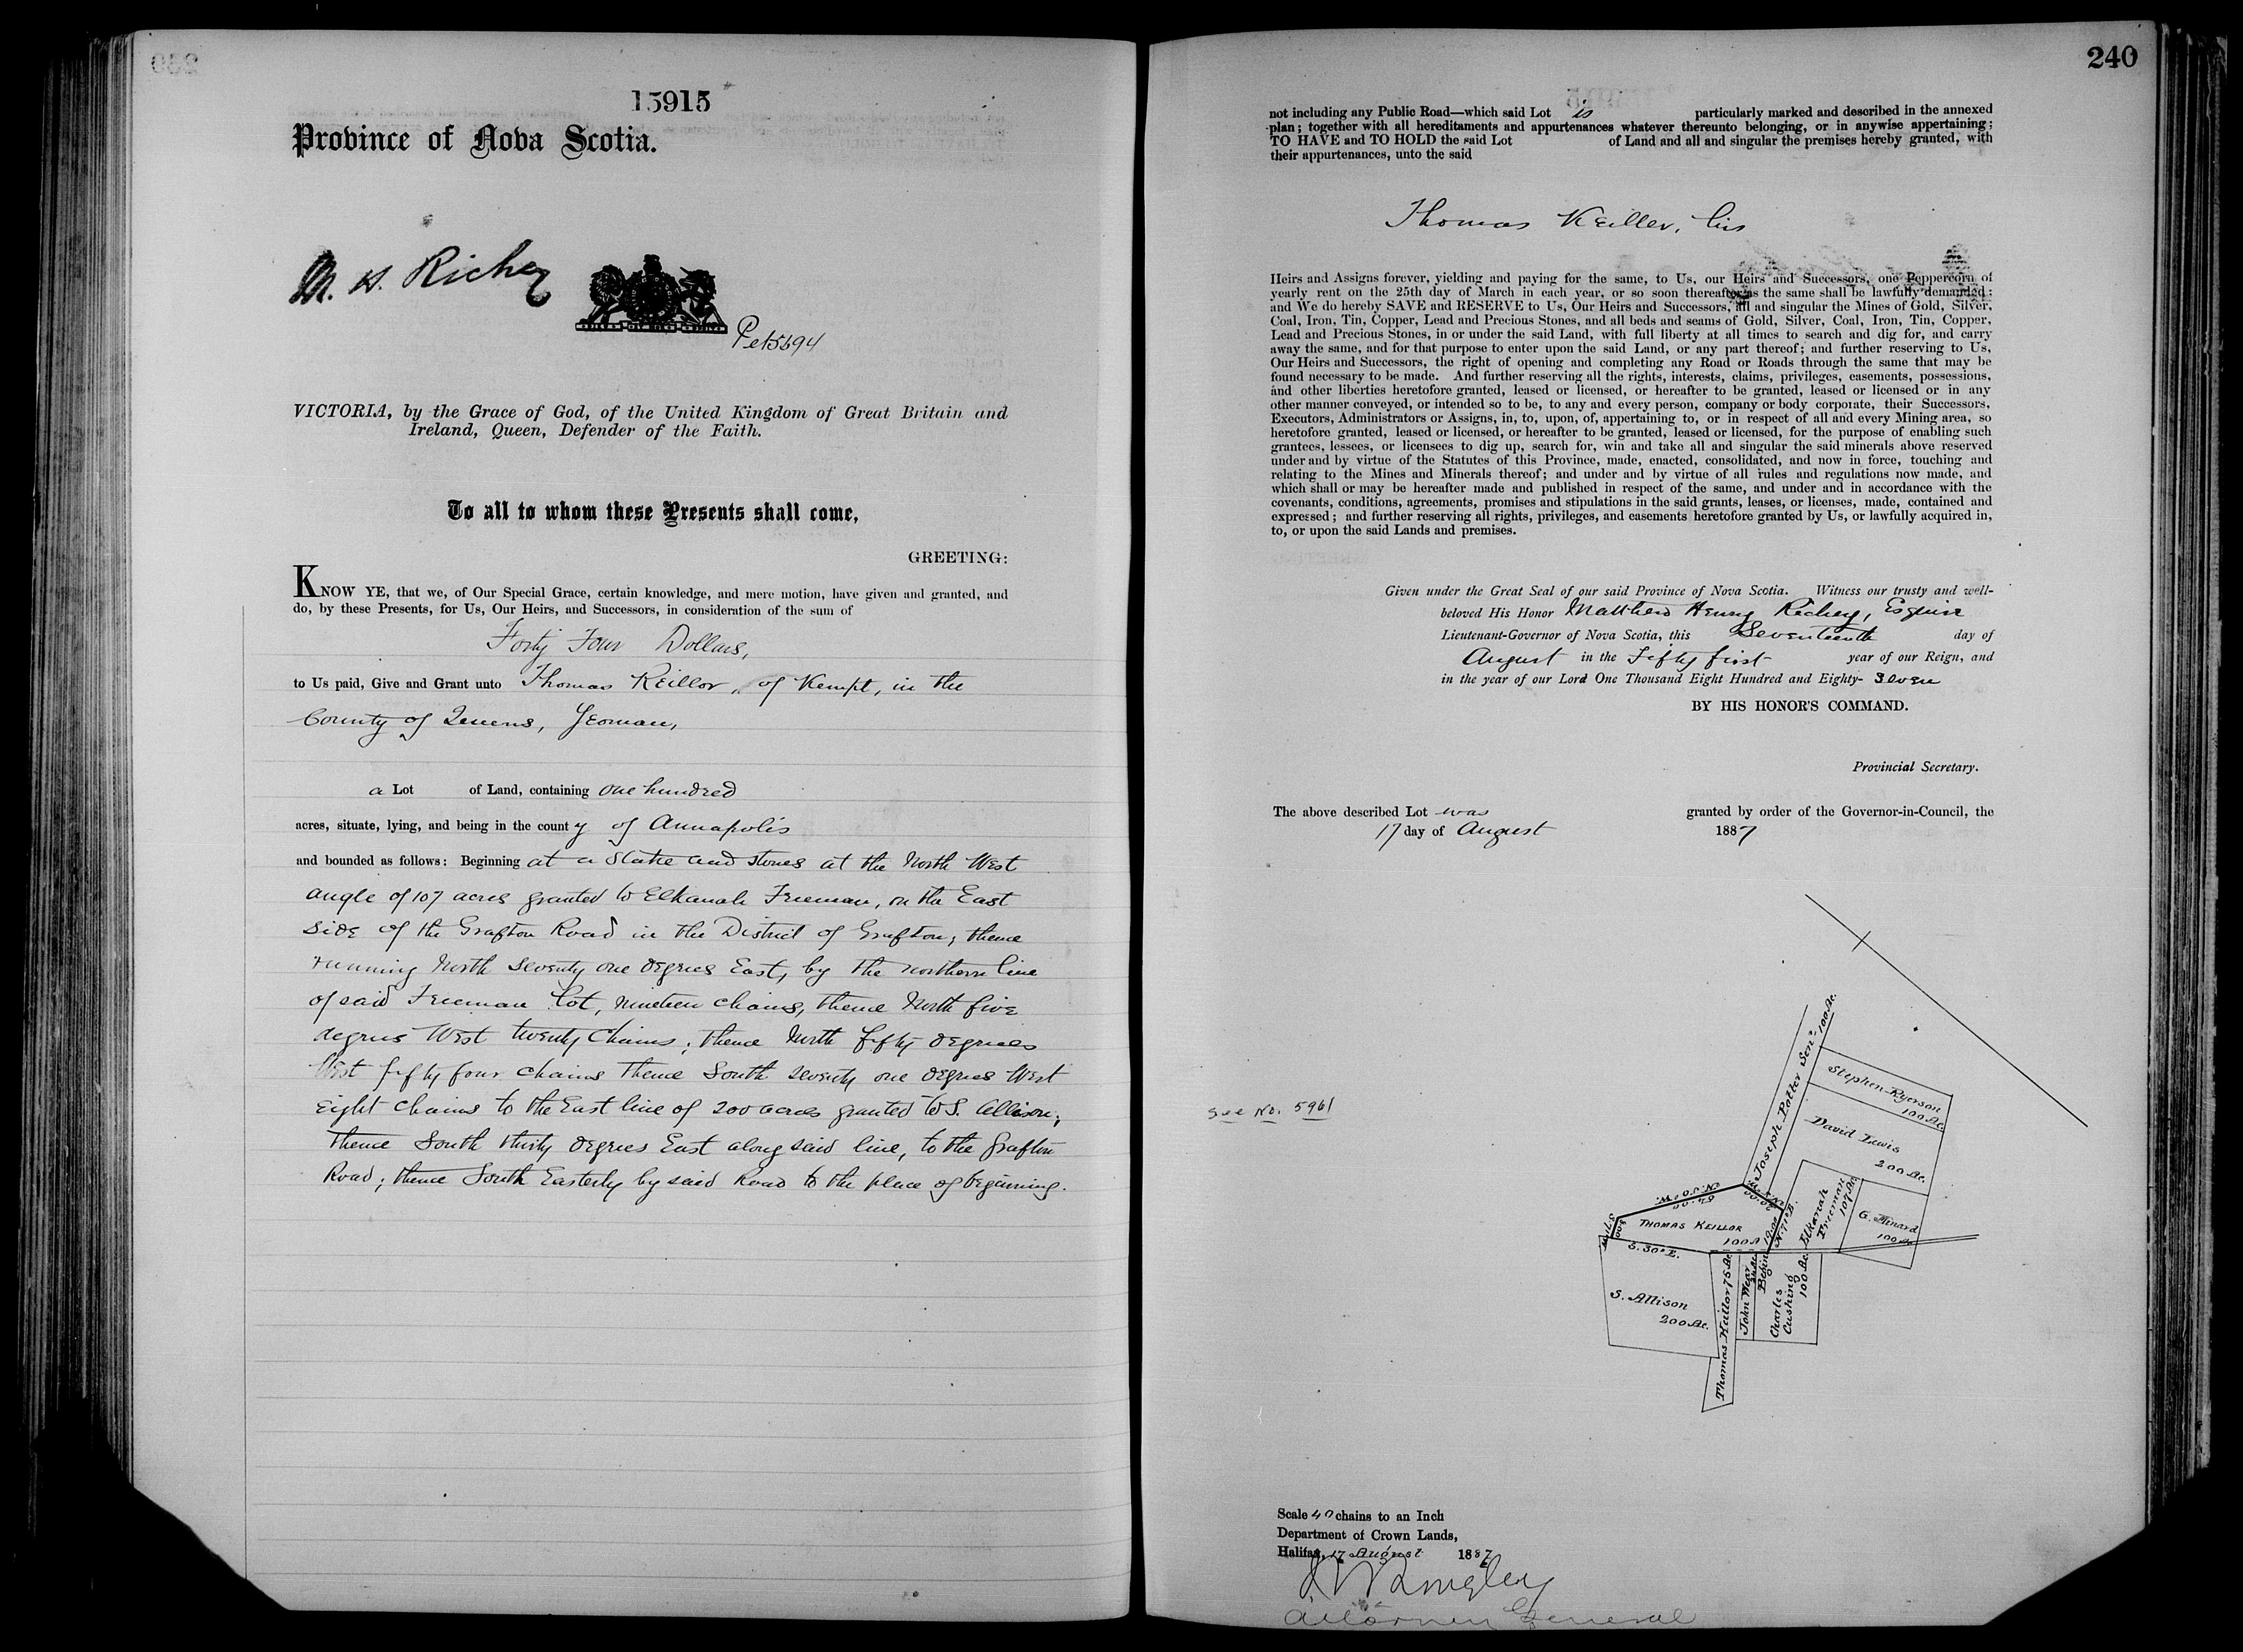 15915
Province of Nova Scotia.
M. H. Richey
Pet 5694
VICTORIA, by the Grace of God, of the United Kingdom of Great Britain and
Ireland, Queen, Defender of the Faith.
To all to whom these Presents shall come,
GREETING:
KNOW YE, that we, of Our Special Grace, certain knowledge, and mere motion, have given and granted, and
do, by these Presents, for Us, Our Heirs, and Successors, in consideration of the sum of
Forty Four Dollars,
to Us paid, Give and Grant unto Thomas Keillor, of Kempt, in the
County of Queens, Yeoman,
a Lot of Land, containing one hundred
acres, situate, lying, and being in the county of Annapolis
and bounded as follows: Beginning at a Stake and stones at the North West
angle of 107 acres granted to Elkanah Freeman, on the East
side of the Grafton Road in the District of Grafton; thence
running North seventy one degrees East, by the northern line
of said Freeman lot, nineteen chains, thence North five
degrees West twenty chains; thence North fifty degrees
West fifty four chains thence South seventy one degrees West
eight chains to the East line of 200 acres granted to S. Allison;
thence South thirty degrees East along said line, to the Grafton
Road; thence South Easterly by said Road to the place of beginning.
240
not including any Public Road—which said Lot is particularly marked and described in the annexed
plan; together with all hereditaments and appurtenances whatever thereunto belonging, or in anywise appertaining;
TO HAVE and TO HOLD the said Lot of Land and all and singular the premises hereby granted, with
their appurtenances, unto the said
Thomas Keillor, his
Heirs and Assigns forever, yielding and paying for the same, to Us, our Heirs and Successors, one Peppercorn of
yearly rent on the 25th day of March in each year, or so soon thereafter as the same shall be lawfully demanded:
and We do hereby SAVE and RESERVE to Us, Our Heirs and Successors, all and singular the Mines of Gold, Silver,
Coal, Iron, Tin, Copper, Lead and Precious Stones, and all beds and seams of Gold, Silver, Coal, Iron, Tin, Copper,
Lead and Precious Stones, in or under the said Land, with full liberty at all times to search and dig for, and carry
away the same, and for that purpose to enter upon the said Land, or any part thereof; and further reserving to Us,
Our Heirs and Successors, the right of opening and completing any Road or Roads through the same that may be
found necessary to be made. And further reserving all the rights, interests, claims, privileges, easements, possessions,
and other liberties heretofore granted, leased or licensed, or hereafter to be granted, leased or licensed or in any
other manner conveyed, or intended so to be, to any and every person, company or body corporate, their Successors,
Executors, Administrators or Assigns, in, to, upon, of, appertaining to, or in respect of all and every Mining area, so
heretofore granted, leased or licensed, or hereafter to be granted, leased or licensed, for the purpose of enabling such
grantees, lessees, or licensees to dig up, search for, win and take all and singular the said minerals above reserved
under and by virtue of the Statutes of this Province, made, enacted, consolidated, and now in force, touching and
relating to the Mines and Minerals thereof; and under and by virtue of all rules and regulations now made, and
which shall or may be hereafter made and published in respect of the same, and under and in accordance with the
covenants, conditions, agreements, promises and stipulations in the said grants, leases, or licenses, made, contained and
expressed; and further reserving all rights, privileges, and easements heretofore granted by Us, or lawfully acquired in,
to, or upon the said Lands and premises.
Given under the Great Seal of our said Province of Nova Scotia. Witness our trusty and well-
beloved His Honor Matthew Henry Richey, Esquire
Lieutenant-Governor of Nova Scotia, this Seventeenth day of
August in the Fifty first year of our Reign, and
in the year of our Lord One Thousand Eight Hundred and Eighty-Seven
BY HIS HONOR'S COMMAND.
Provincial Secretary.
The above described Lot was granted by order of the Governor-in-Council, the
17 day of August 1887
See No. 5961
Joseph Potter Senr. 100 Ac.
Stephen Ryerson
100 Ac.
David Lewis
200 Ac.
N. 50° W.
54.00
THOMAS KEILLOR
100 A
19.00
N. 71° E.
Elkanah
Freeman
107 Ac.
G. Minard
100 Ac.
S. 30° E.
S. Allison
200 Ac.
Thomas Keillor 75 Ac.
John Wear
Begin
Charles
Cushing
100 Ac.
Scale 40 chains to an Inch
Department of Crown Lands,
Halifax, 17 August 1887
J W Longley
Attorney General